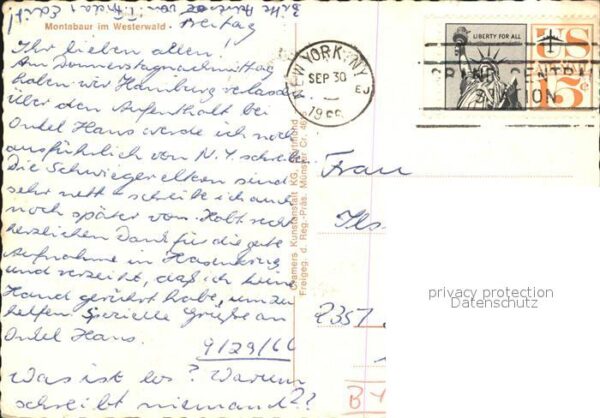 Bitte
Montabaur im Westerwald
Freitag
Ihr lieben allen!
Am Donnerstagnachmittag
haben wir Hamburg verlass
über den Aufenthalt bei
Onkel Hans werde ich noch
ausführlich von N.Y. schreibe
Die Schwiegereltern sind
sehr nett – schreibe ich auch
noch später von. Habt recht
herzlichen Dank für die gute
Aufnahme in Hasenkrug
und verzeiht, daß ich kein
Hand gerührt habe, um zu
helfen. Spezielle Grüße an
Onkel Hans.
9/29/66
Was ist los? Warum
schreibt niemand??
Cramers Kunstanstalt KG, Dortmund
Freigeg. d. Reg.-Präs. Münster Cr.
NEW YORK, N.Y.
SEP 30
EJ
LIBERTY FOR ALL
US
15¢
GRAND CENTRAL
STATION
Frau
Ils
2351
privacy protection
Datenschutz